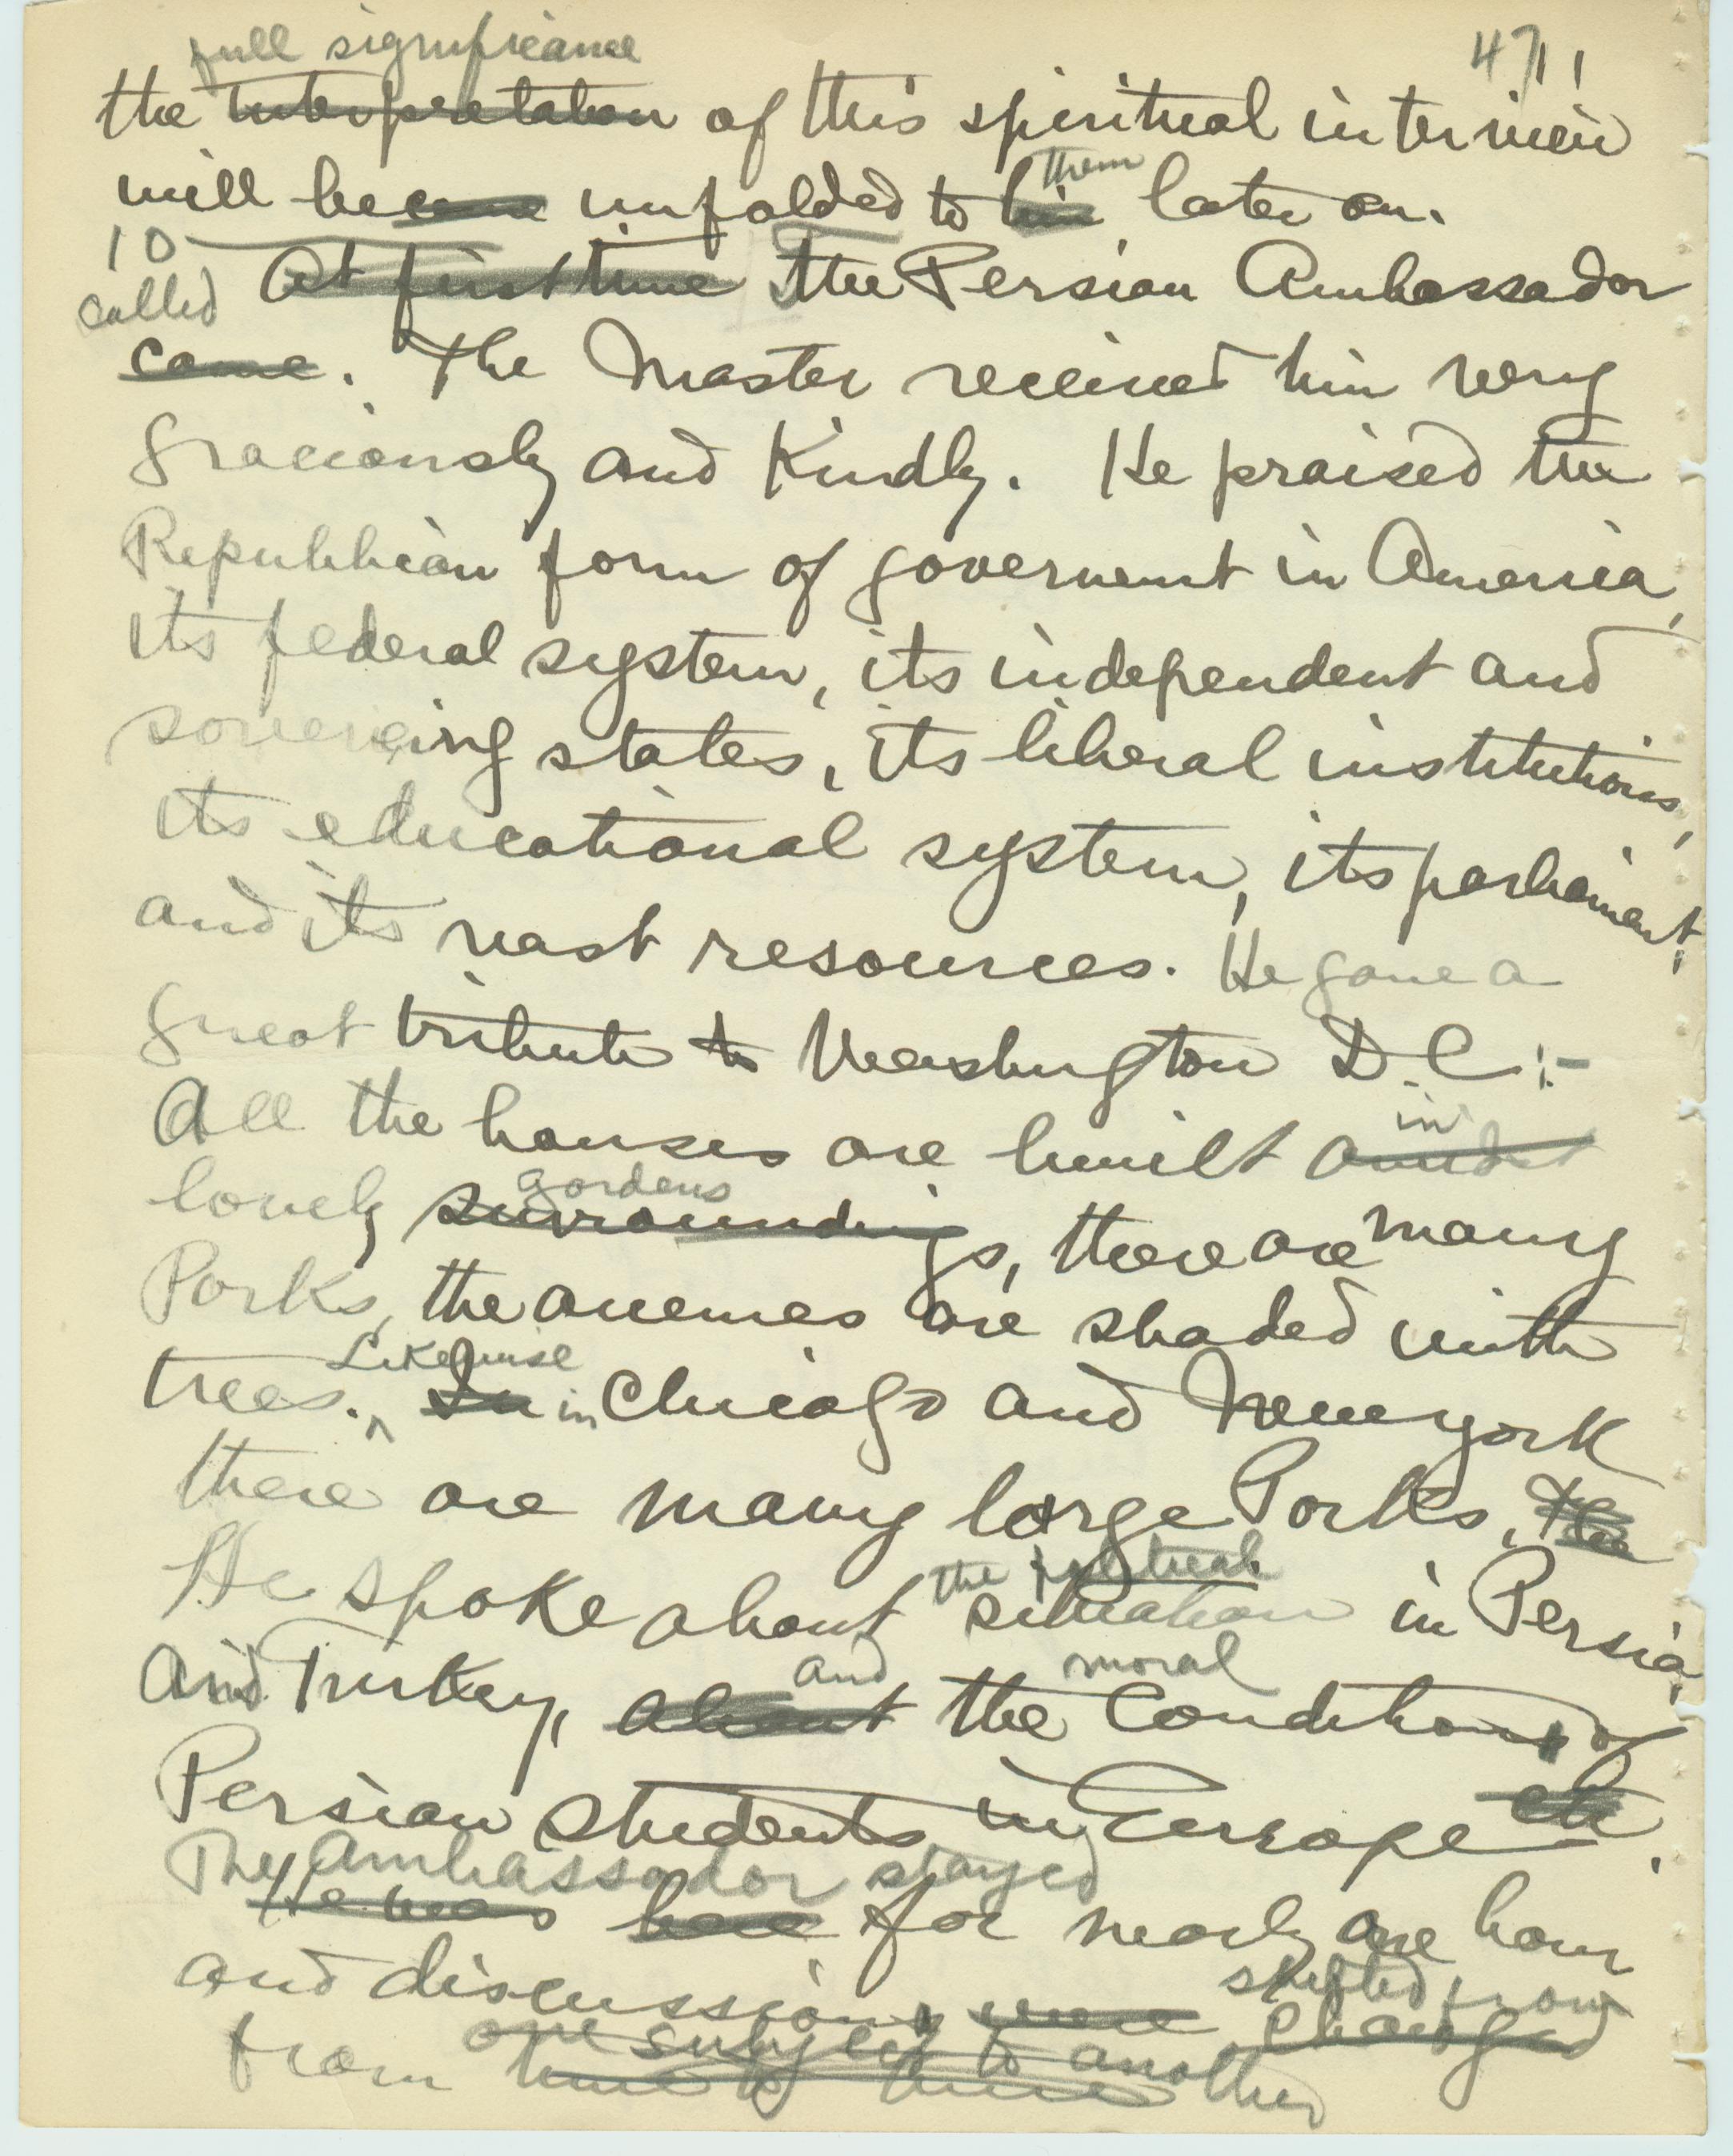 471
full significance
the interpretation of this spiritual interview
will become unfolded to him them later on.
10
called At first time the Persian Ambassador
came. The Master received him very
graciously and kindly. He praised the
Republican form of goverment in America,
its federal system, its independent and
sovereing states, its liberal institutions,
its educational system, its parliament,
and its vast resources. He gave a
great tribute to Washington D.C.:-
All the houses are built amidst in
lovely surroundings gardens, there are many
Parks, the avenues are shaded with
trees. Likewise In in Chicago and New york
there are many large Parks. The
He spoke about the political situation in Persia
and Turkey, about and the moral Conditions of
Persian students in Europe etc.
The Ambassador stayed
He was here for nearly one hour
and discussions were changed shifted from
from time to time one subject to another